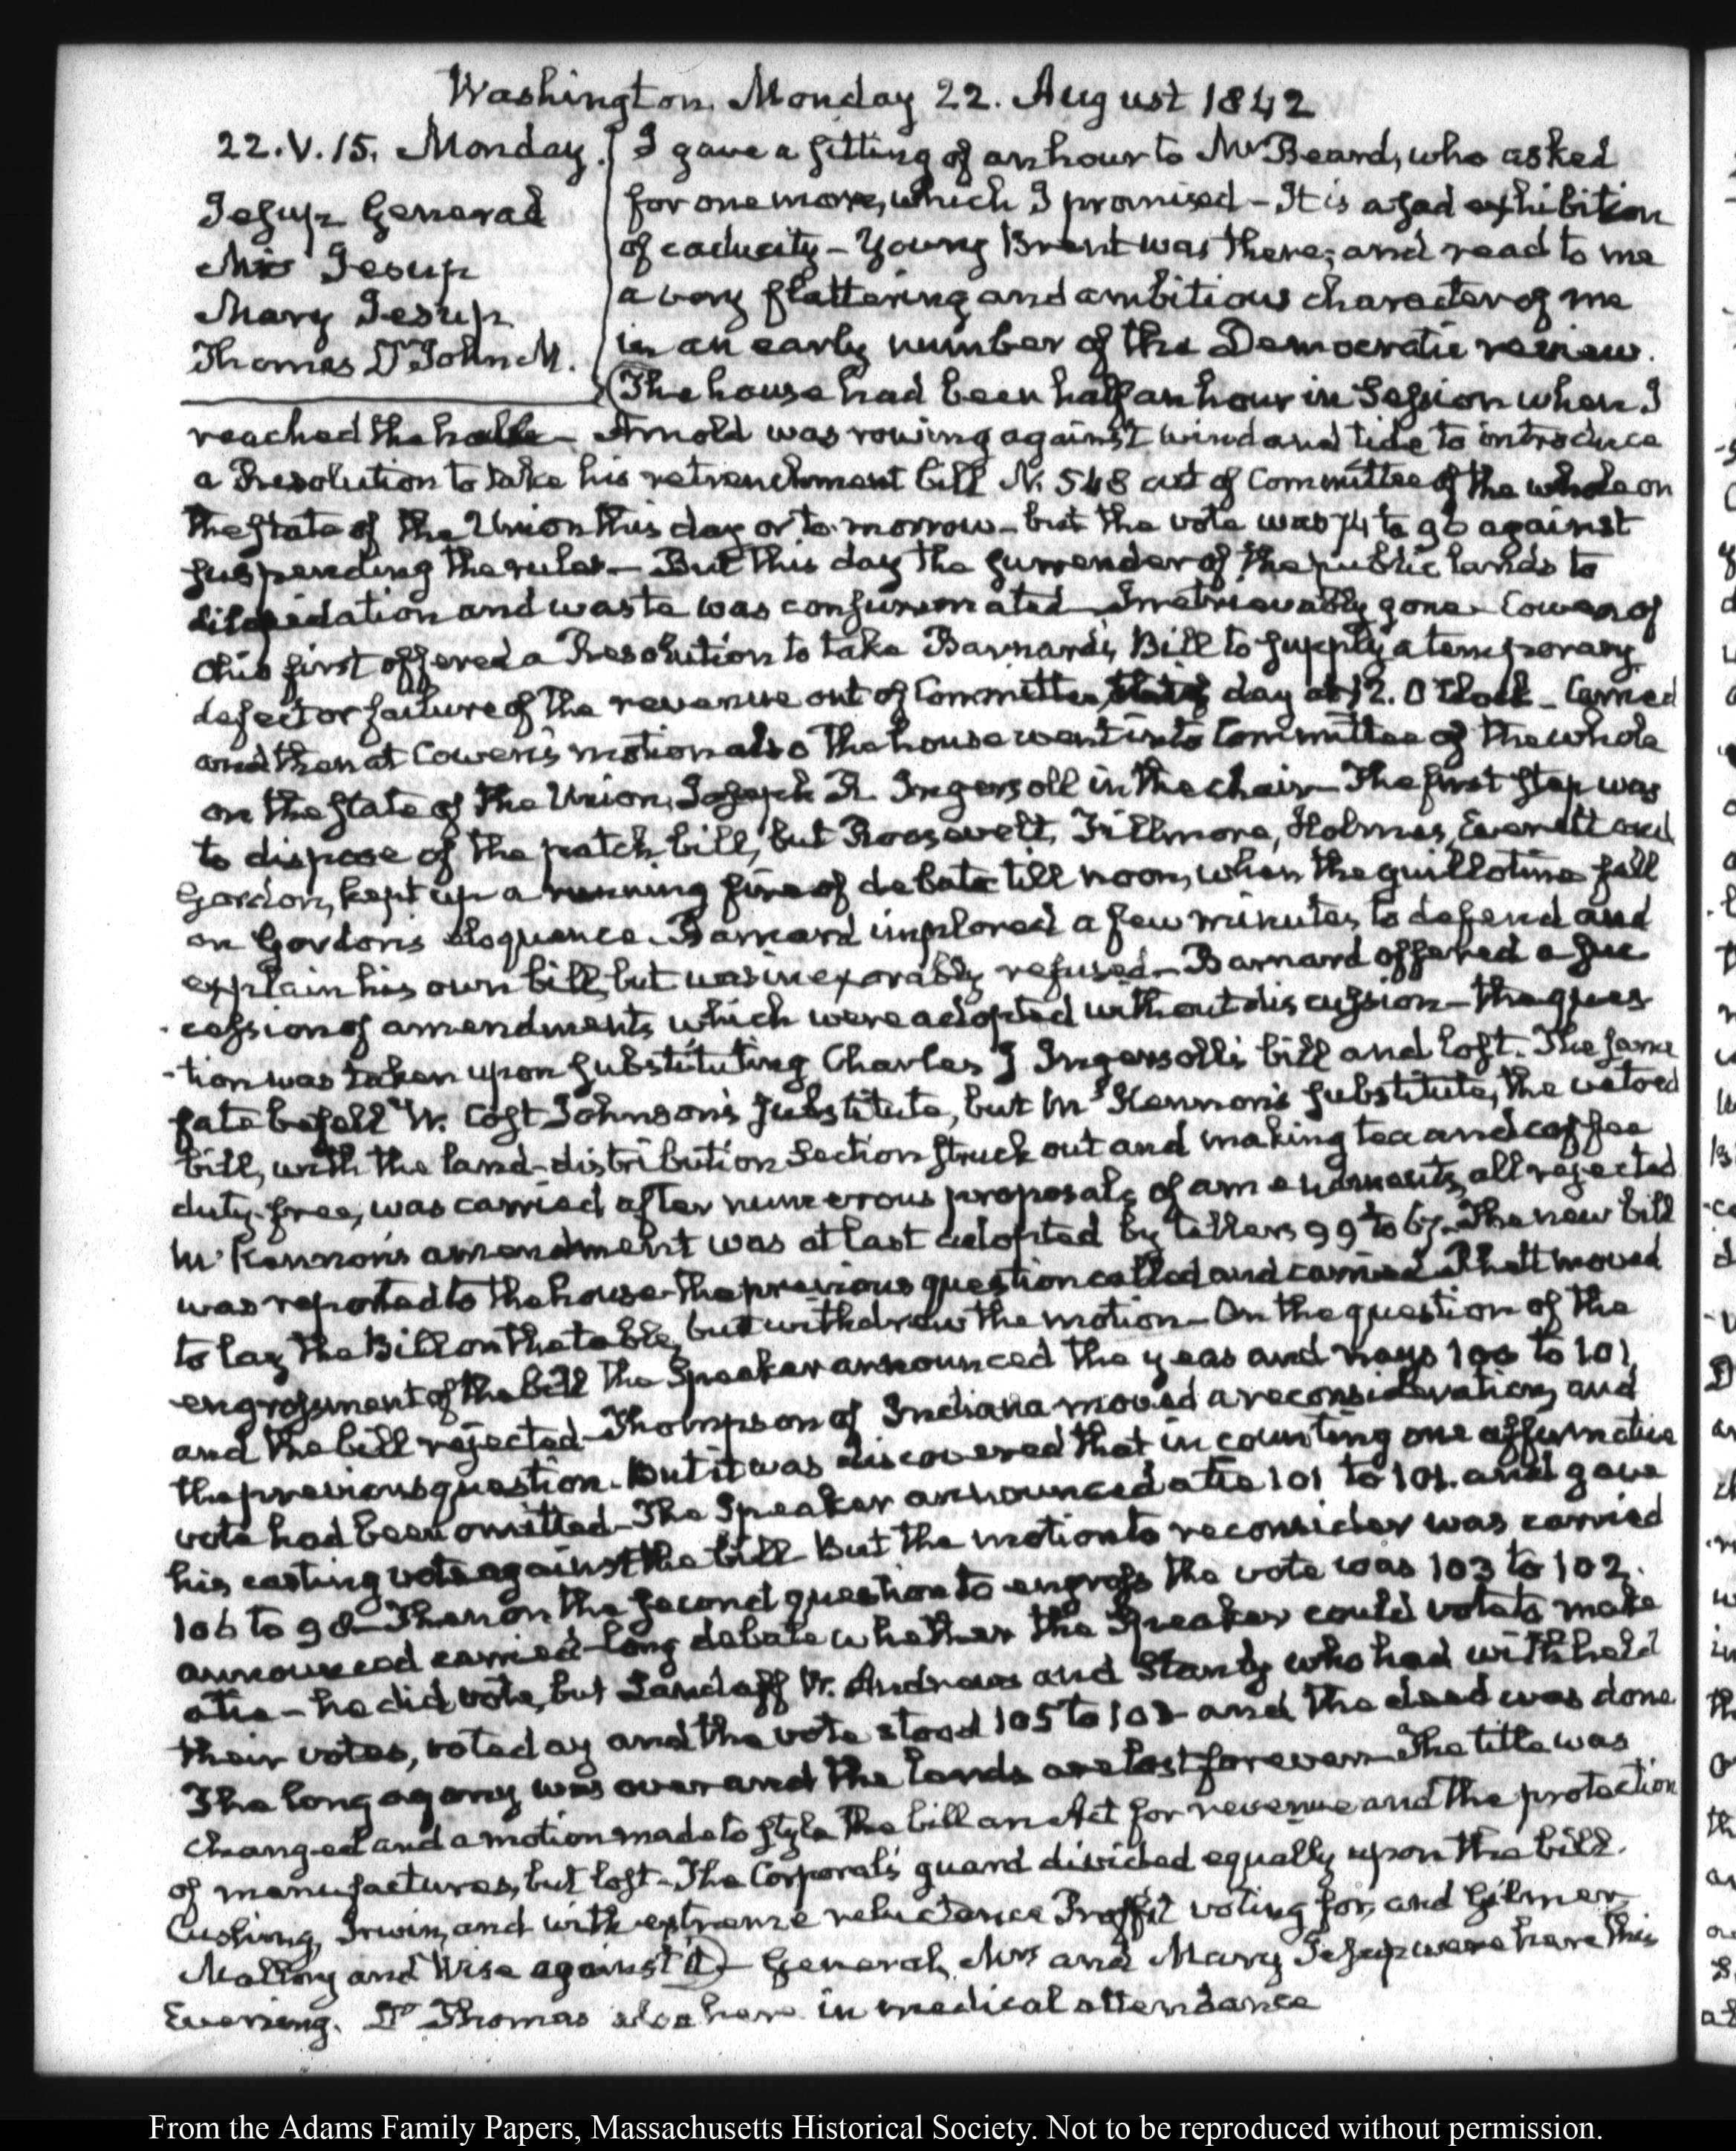 Washington Monday 22. August 1842
22.V.15. Monday.
Jesup General
Mrs Jesup
Mary Jesup
Thomas Dr John M.
I gave a sitting of an hour to Mr Beard, who asked
for one more, which I promised – It is a sad exhibition
of caducity – Young Brent was there, and read to me
a very flattering and ambitious character of me
in an early number of the Democratic review.
(The house had been half an hour in Session when I
reached the halls – Arnold was rowing against wind and tide to introduce
a Resolution to take his retrenchment bill N. 548 out of Committee of the whole on
the state of the Union this day or to-morrow – but the vote was 74 to 96 against
suspending the rules – But this day the surrender of the public lands to
dilapidation and waste was consummated – Irretrievably gone – Cowen of
Ohio first offered a Resolution to take Barnard's Bill to supply a temporary
defect or failure of the revenue out of Committee, this day at 12. O'Clock – Carried
and then at Cowen's motion also the house went into Committee of the whole
on the state of the Union, Joseph R. Ingersoll in the chair – The first step was
to dispose of the patch bill, but Roosevelt, Fillmore, Holmes, Everett and
Gordon, kept up a running fire of debate till noon, when the guillotine fell
on Gordon's eloquence. Barnard implored a few minutes to defend and
explain his own bill, but was inexorably refused – Barnard offered a suc
-cession of amendments which were adopted without discussion – the ques
-tion was taken upon substituting Charles J Ingersoll's bill and lost. The same
fate befell W. Cost Johnson's substitute, but McKennon's substitute, the vetoed
bill, with the land-distribution Section struck out and making tea and coffee
duty-free, was carried after numerous proposals of amendments, all rejected
McKennon's amendment was at last adopted by tellers 99 to 67. The new bill
was reported to the house – the previous question called and carried. Rhett moved
to lay the Bill on the table, but withdrew the motion – On the question of the
engrossment of the bill the Speaker announced the yeas and nays 100 to 101,
and the bill rejected – Thompson of Indiana moved a reconsideration, and
the previous question. But it was discovered that in counting one affirmative
vote had been omitted – The Speaker announced a tie 101 to 101. and gave
his casting vote against the bill – But the motion to reconsider was carried
106 to 98 – Then on the second question to engross the vote was 103 to 102.
announced carried – long debate whether the Speaker could vote to make
a tie – he did vote, but Landaff W. Andrews and Stanly who had withheld
their votes, voted ay and the vote stood 105 to 103 – and the deed was done
The long agony was over and the lands are lost forever – The title was
changed and a motion made to style the bill an Act for revenue and the protection
of manufactures, but lost – The Corporal's guard divided equally upon the bill.
Cushing, Irwin, and with extreme reluctance Proffit voting for, and Gilmer,
Mallory and Wise against it) – General, Mrs and Mary Jesup were here this
Evening. Dr Thomas also here in medical attendance
From the Adams Family Papers, Massachusetts Historical Society. Not to be reproduced without permission.